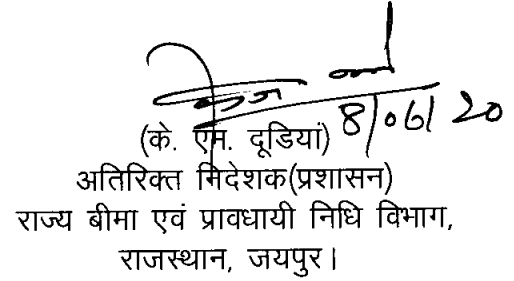 8/06/20
(के. एम. दूडियां)
अतिरिक्त निदेशक(प्रशासन)
राज्य बीमा एवं प्रावधायी निधि विभाग,
राजस्थान, जयपुर।